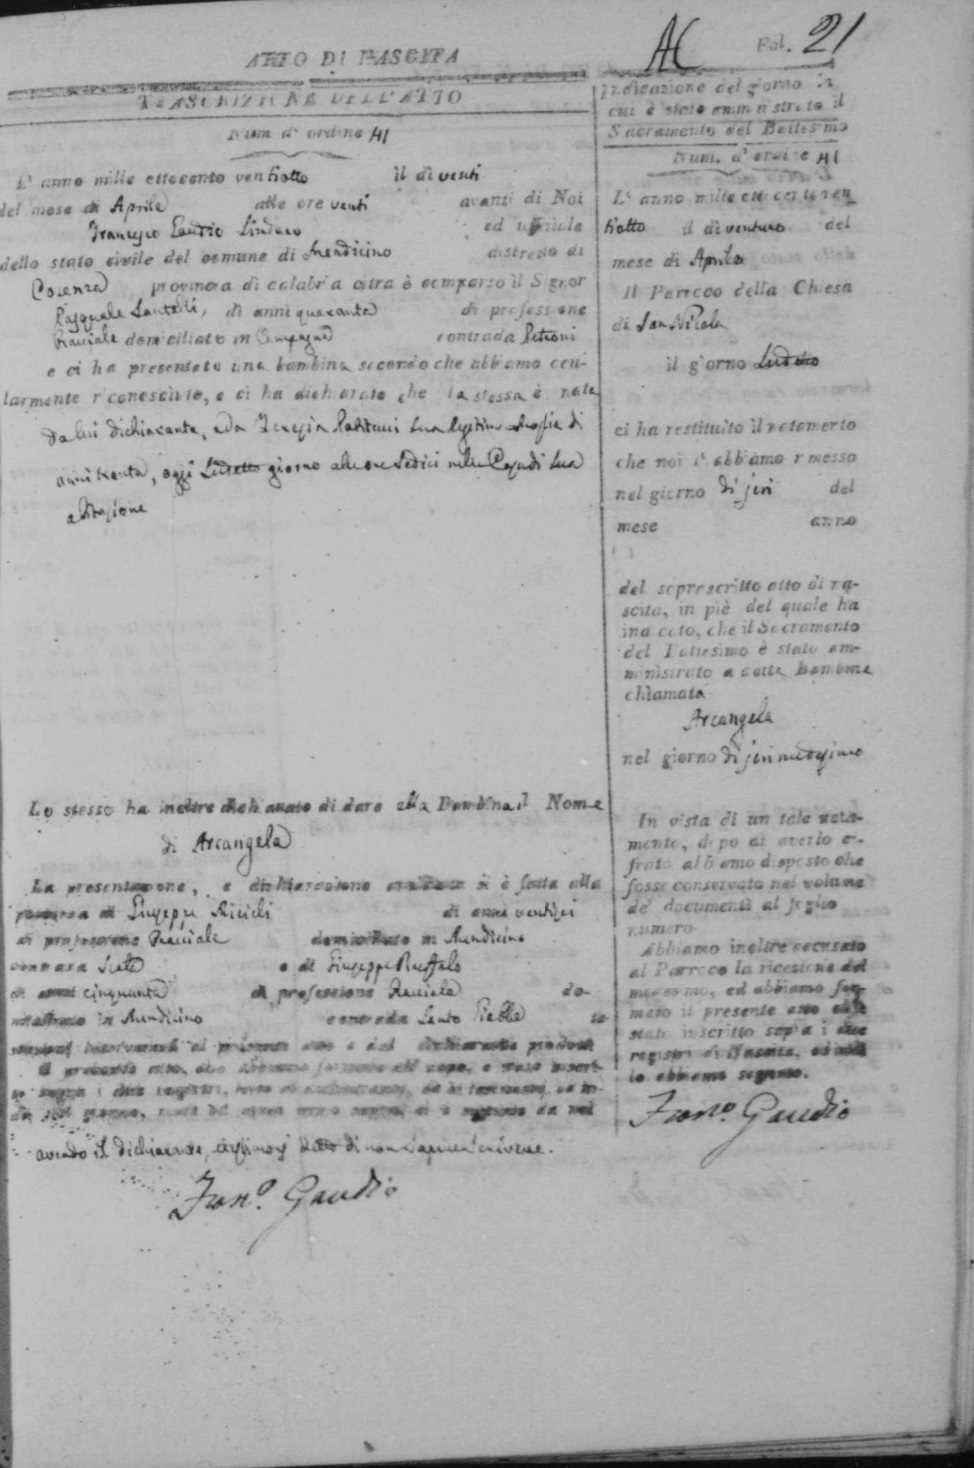 ATTO DI NASCITA
AC Fol. 21
TRASCRIZIONE DELL'ATTO
Num. d'ordine 41
L'anno mille ottocento ventiotto il dì venti
del mese di Aprile alle ore venti avanti di Noi
Francesco Gaudio Sindaco ed uffiziale
dello stato civile del comune di Mendicino distretto di
Cosenza provincia di calabria citra è comparso il Signor
Pasquale Santelli, di anni quaranta di professione
Bracciale domiciliato in Campagna contrada Petroni
e ci ha presentato una bambina secondo che abbiamo ocu-
larmente riconosciuto, e ci ha dichiarato che la stessa è nata
da lui dichiarante, e da Teresia Politani sua legitima moglie di
anni trenta, oggi sudetto giorno alle ore sedici nella Casa di sua
abitazione
Lo stesso ha inoltre dichiarato di dare alla Bambina il Nome
di Arcangela
La presentazione, e dichiarazione si è fatta alla
presenza di Giuseppe Ricioli di anni ventisei
di professione Bracciale domiciliato in Mendicino
contrada Scala e di Giuseppe Ruffolo
di anni cinquanta di professione Bracciale do-
miciliato in Mendicino contrada Santo
avendo il dichiarante, testimonj detto di non sapere scrivere.
Franco. Gaudio
Indicazione del giorno in
cui è stato amministrato il
Sacramento del Battesimo
Num. d'ordine 41
L'anno mille ottocento ven
tiotto il dì ventuno del
mese di Aprile
Il Parroco della Chiesa
di San Nicola
il giorno sudetto
ci ha restituito il notamento
che noi l'abbiamo rimesso
nel giorno di jeri del
mese anno
del soprascritto atto di na-
scita, in piè del quale ha
indicato, che il Sacramento
del Battesimo è stato am-
ministrato a detta bambina
chiamata
Arcangela
nel giorno di jeri medesimo
In vista di un tale nota-
mento, dopo di averlo ci-
frato abbiamo disposto che
fosse conservato nel volume
de' documenti al foglio
numero
Abbiamo inoltre accusato
al Parroco la ricezione del
medesimo, ed abbiamo for-
mato il presente atto ch'è
stato inscritto sopra i due
registri di Nascita, ed indi
lo abbiamo segnato.
Franco. Gaudio